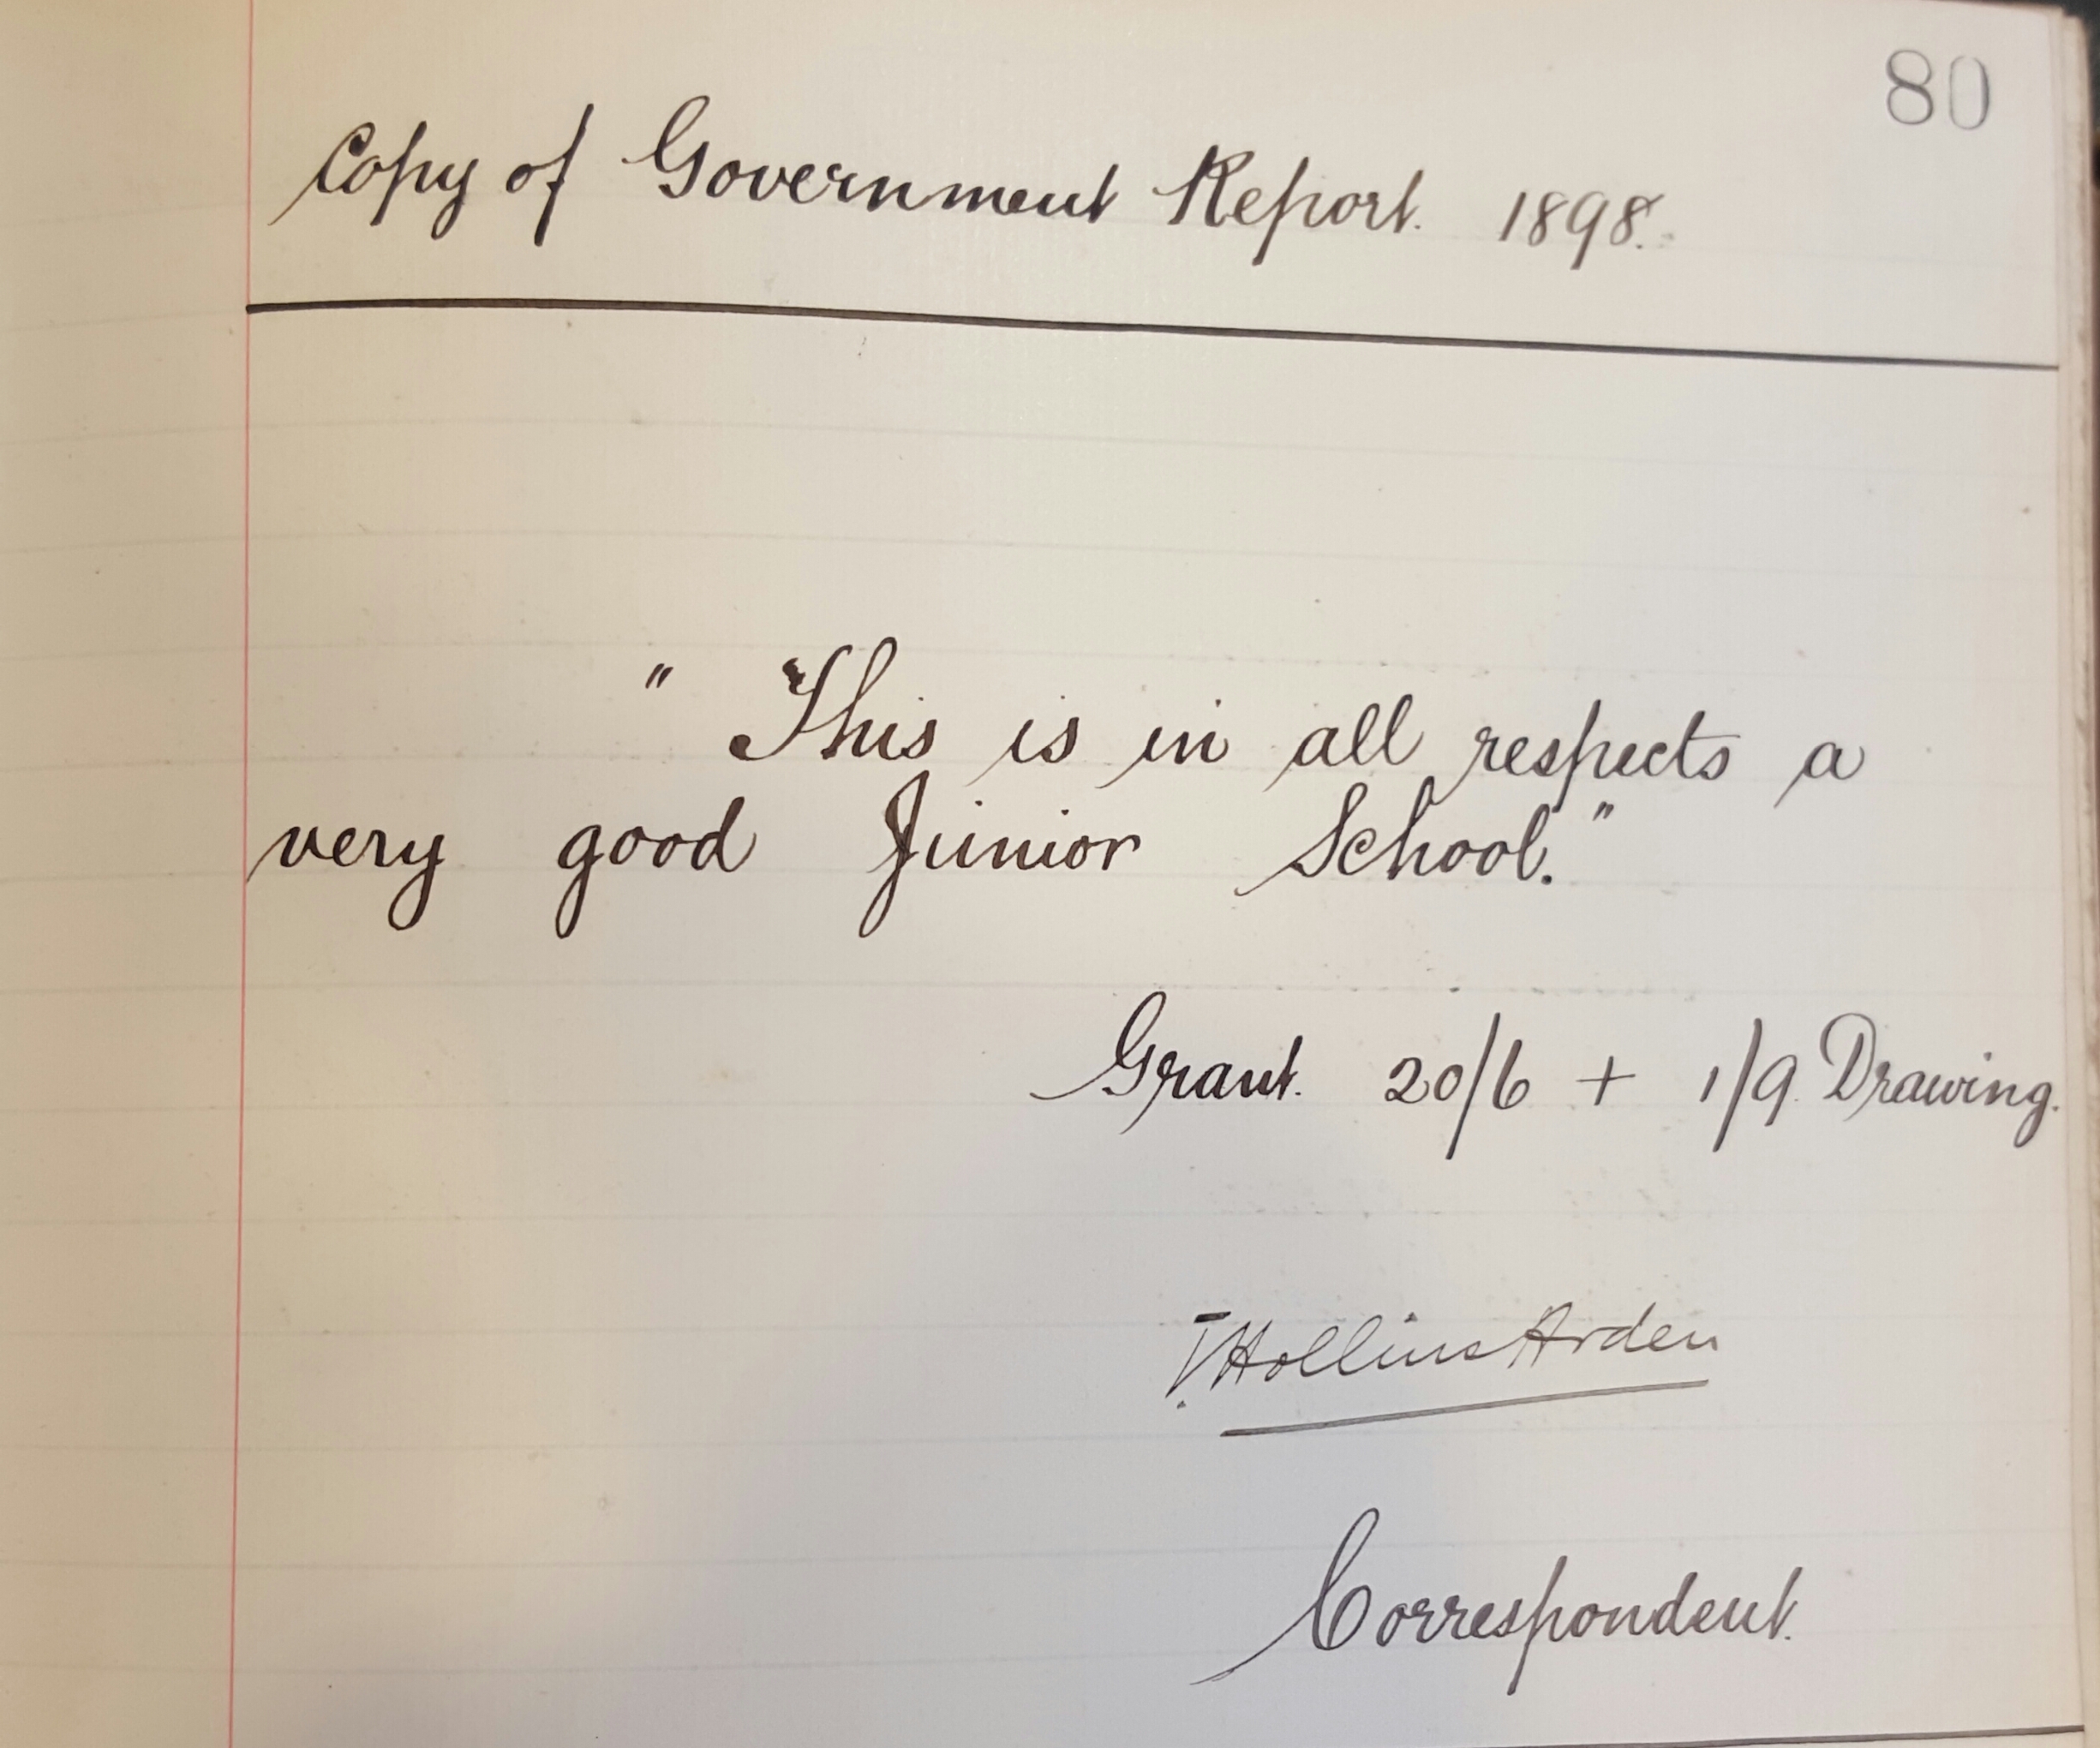 80
Copy of Government Report. 1898.
" This is in all respects a
very good Junior School."
Grant. 20/6 + 1/9 Drawing.
T. Hollins Arden
Correspondent.